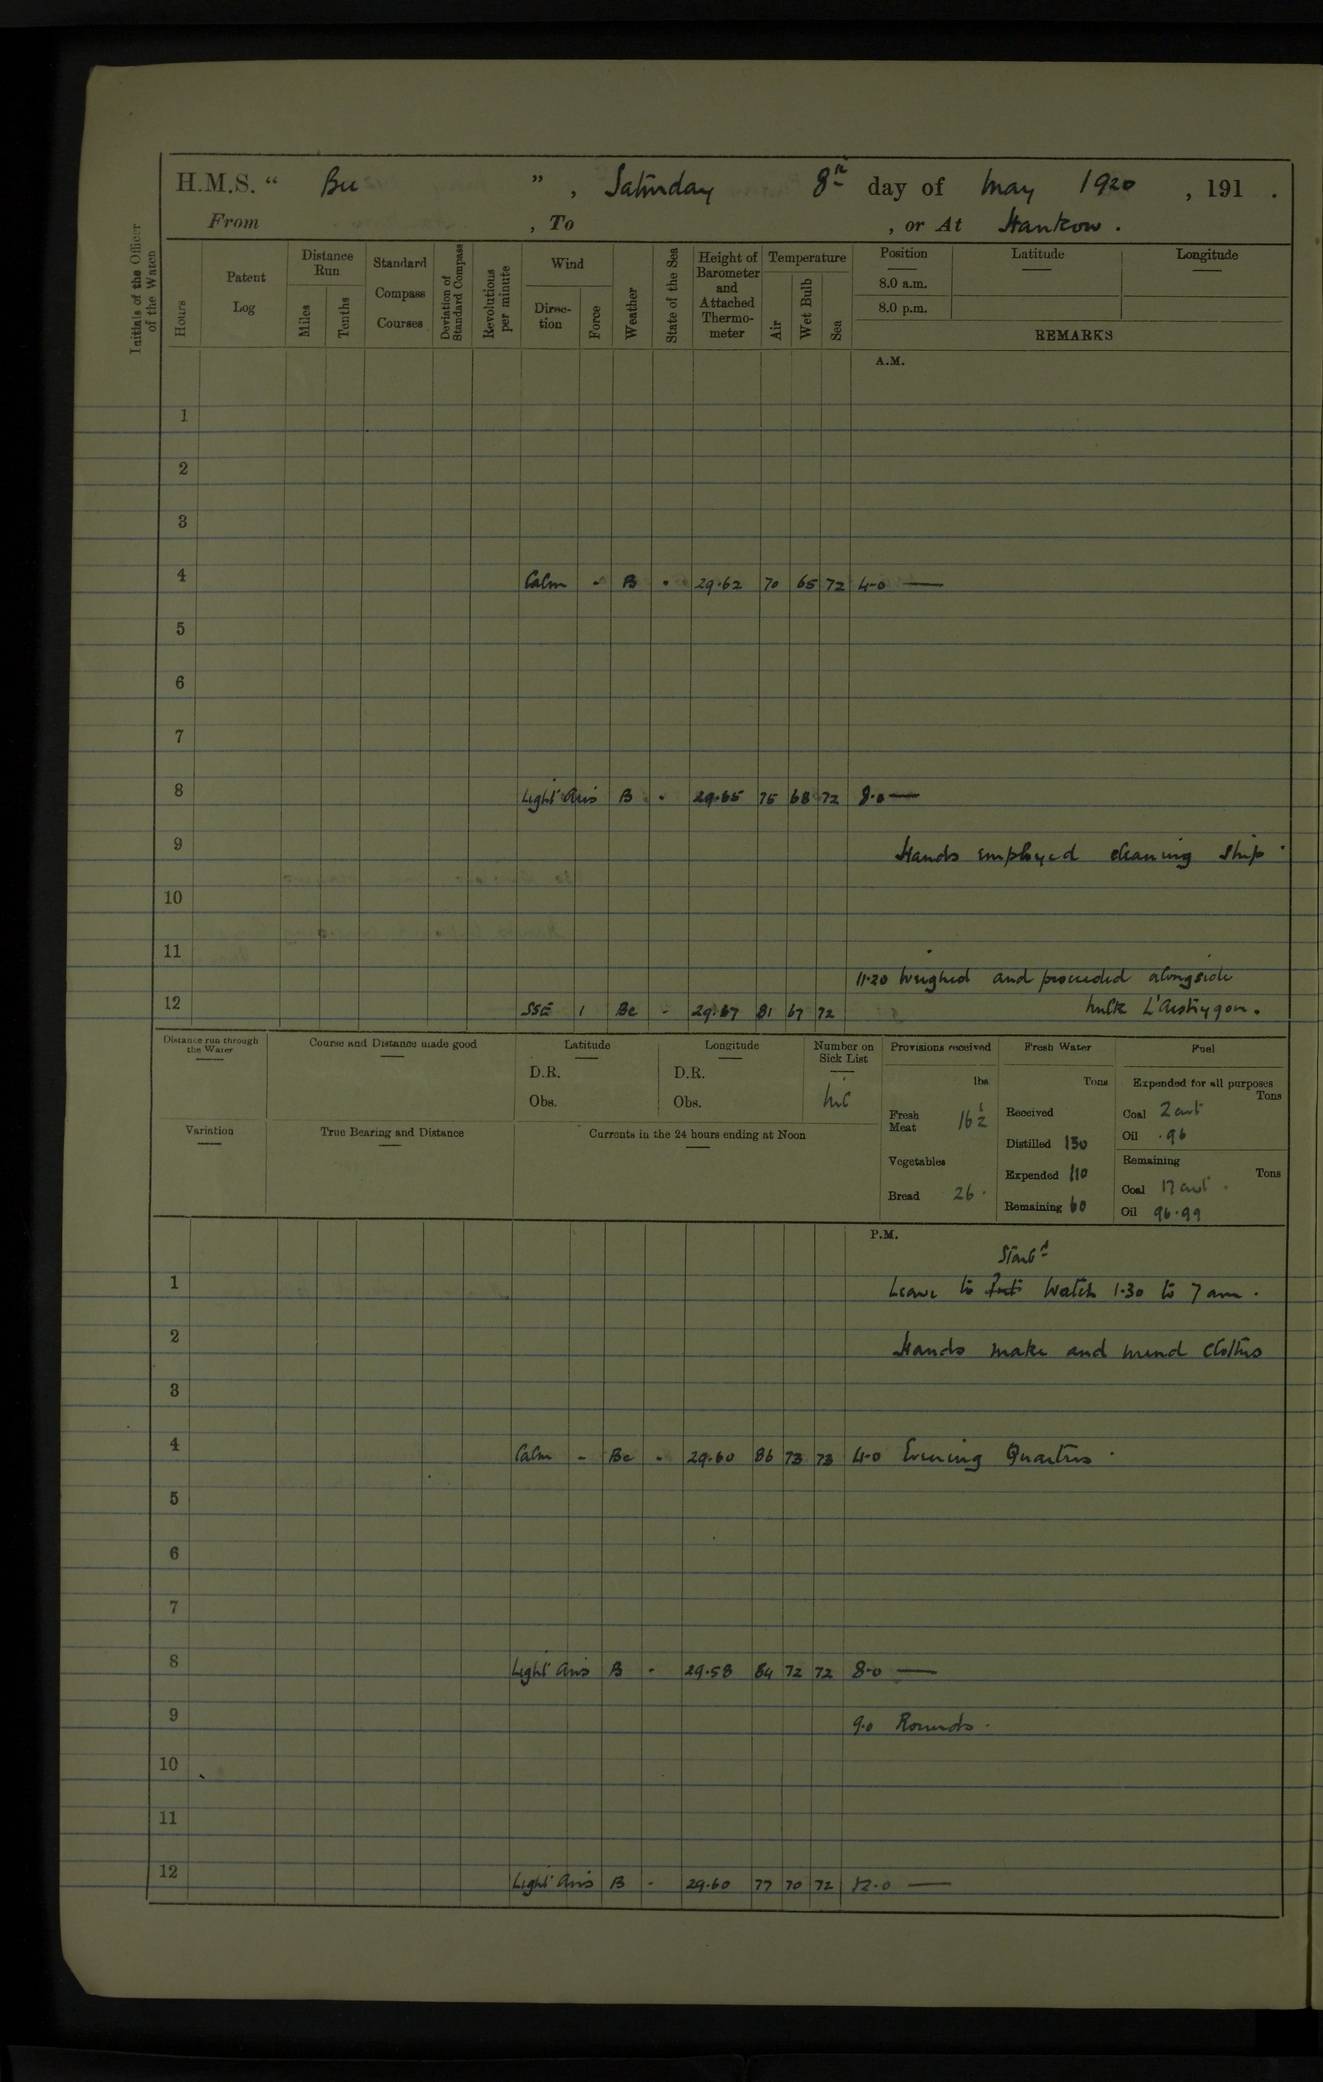 H.M.S. “ Bee ” , Saturday 8th day of May 1920 , 191 .
From , To , or At Hankow .
Initials of the Officer of the Watch
Hours
Patent Log
Distance Run
Miles
Tenths
Standard Compass Courses
Deviation of Standard Compass
Revolutions per minute
Wind
Direction
Force
Weather
State of the Sea
Height of Barometer and Attached Thermometer
Temperature
Air
Wet Bulb
Sea
Position
8.0 a.m.
8.0 p.m.
Latitude
Longitude
REMARKS
A.M.
1
2
3
4 Calm - B - 29.62 70 65 72 4-0 —
5
6
7
8 Light airs B - 29.65 75 68 72 8.0 —
9 Hands employed cleaning ship .
10
11
11.20 Weighed and proceeded alongside
12 SSE 1 Bc - 29.67 81 67 72 hulk L'Aestrygon .
Distance run through the Water
Course and Distance made good
Latitude
D.R.
Obs.
Longitude
D.R.
Obs.
Number on Sick List
Nil
Variation
True Bearing and Distance
Currents in the 24 hours ending at Noon
Provisions received
lbs
Fresh Meat 16½
Vegetables
Bread 26 .
Fresh Water
Tons
Received
Distilled 130
Expended 110
Remaining 60
Fuel
Expended for all purposes
Tons
Coal 2 cwt
Oil .96
Remaining
Tons
Coal 17 cwt .
Oil 96.99
P.M.
Starbd
1 Leave to Watch 1.30 to 7 am .
2 Hands make and mend clothes
3
4 Calm - Bc - 29.60 86 73 73 4-0 Evening Quarters .
5
6
7
8 Light airs B - 29.58 84 72 72 8-0 —
9 9.0 Rounds .
10
11
12 Light airs B - 29.60 77 70 72 12.0 —